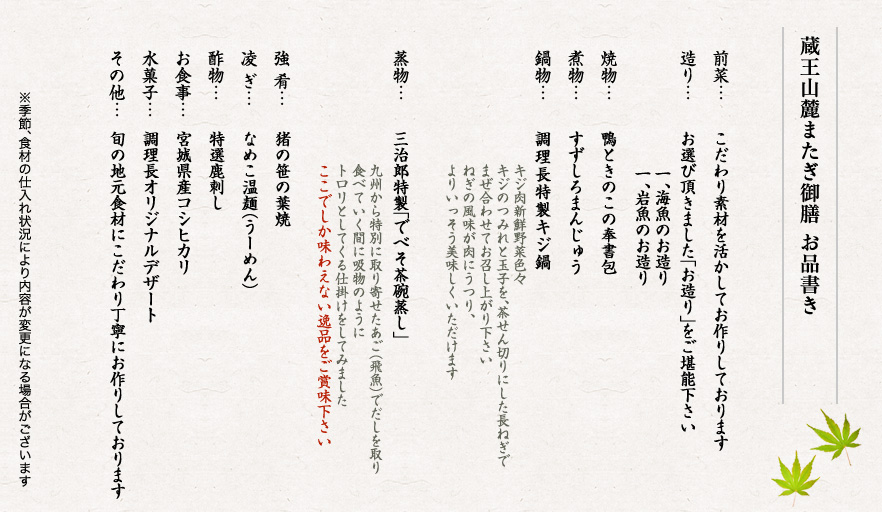 蔵王山麓またぎ御膳 お品書き
前菜… こだわり素材を活かしてお作りしております
造り… お選び頂きました「お造り」をご堪能下さい
一、海魚のお造り
一、岩魚のお造り
焼物… 鴨ときのこの奉書包
煮物… すずしろまんじゅう
鍋物… 調理長特製キジ鍋
キジ肉新鮮野菜色々
キジのつみれと玉子を、茶せん切りにした長ねぎで
まぜ合わせてお召し上がり下さい
ねぎの風味が肉にうつり、
よりいっそう美味しくいただけます
蒸物… 三治郎特製「でべそ茶碗蒸し」
九州から特別に取り寄せたあご(飛魚)でだしを取り
食べていく間に吸物のように
トロリとしてくる仕掛けをしてみました
ここでしか味わえない逸品をご賞味下さい
強 肴… 猪の笹の葉焼
凌 ぎ… なめこ温麺(うーめん)
酢物… 特選鹿刺し
お食事… 宮城県産コシヒカリ
水菓子… 調理長オリジナルデザート
その他… 旬の地元食材にこだわり丁寧にお作りしております
※季節、食材の仕入れ状況により内容が変更になる場合がございます